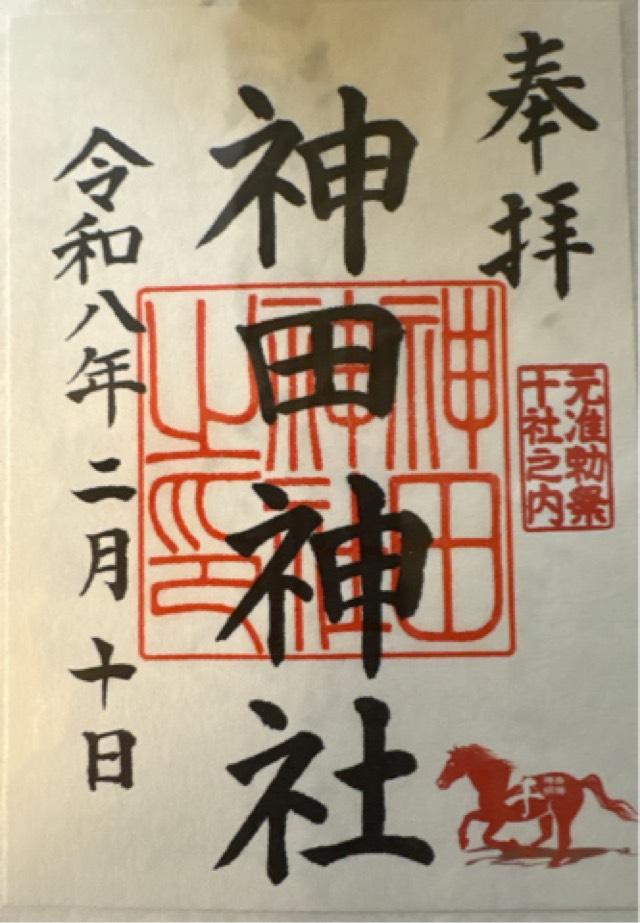 奉拝
元准勅祭
十社之内
神田神社
神田
神社
之印
令和八年二月十日
午